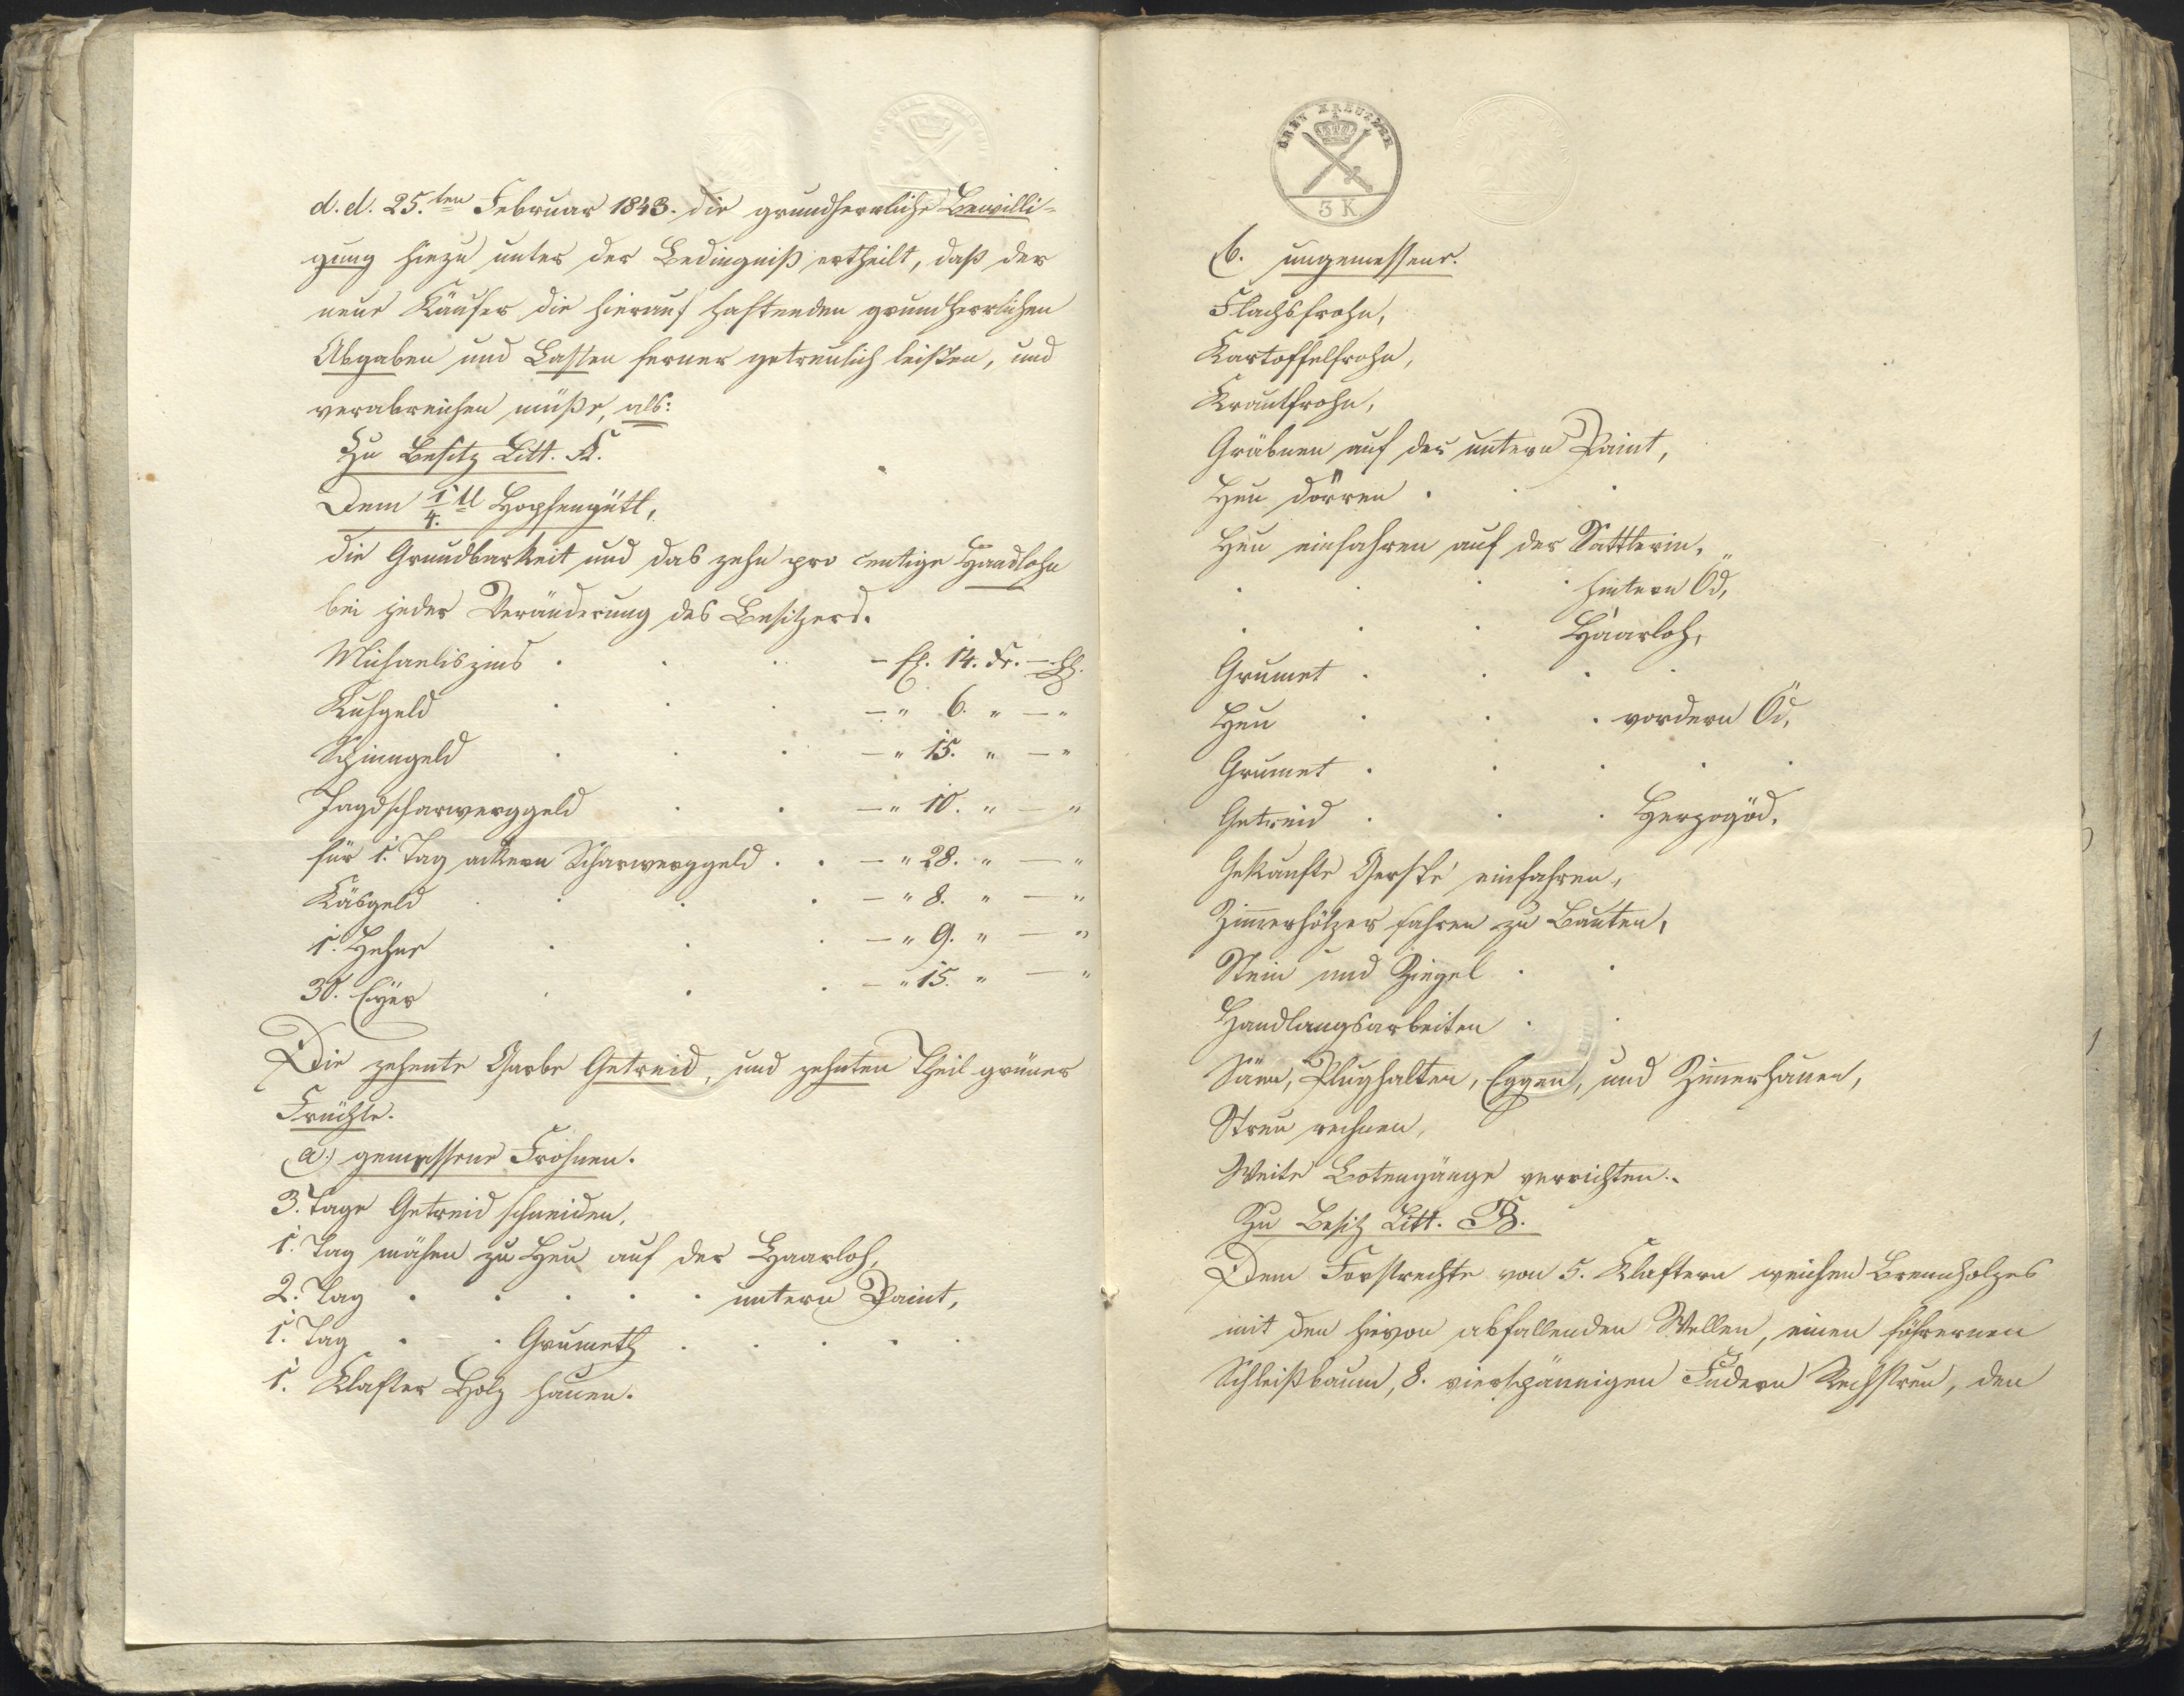 d. d. 25.ten Februar 1843. die grundherrliche Bewilli-
gung hiezu unter der Bedingniß ertheilt, daß der
neue Käufer die hierauf haftenden grundherrlichen
Abgaben und Lasten ferner getreulich leisten, und
verabreichen müße, als:
Zu Besitz Litt. A.
Dem 1/4.tl Hopfengütl,
die Grundbarkeit und das zehn pro centige Handlohn
bei jeder Veränderung des Besitzers.
Michaeliszins . . . – fl. 14. kr. – hl.
Kuhgeld . . . – " 6. " – "
Spinngeld . . . – " 15. " – "
Jagdscharwerggeld . . – " 10. " – "
für 1. Tag ackern Scharwerggeld . . – " 28. " – "
Käsgeld . . . . – " 8. " – "
1. Hehne . . . – " 9. " – "
30. Eyer . . . – " 15. " – "
Die zehente Garbe Getreid, und zehnten Theil grüner
Früchte.
a.) gemessene Frohnen.
3. Tage Getreid schneiden,
1. Tag mähen zu Heu auf der Haarloh,
2. Tag . . . . . untern Paint,
1. Tag . . Grumeth . . . .
1. Klafter Holz hauen.
DREY KREUZER
3 K.
b. ungemessene.
Flachsfrohn,
Kartoffelfrohn,
Krautfrohn,
Gräbnen auf der untern Paint,
Heu dörren . . .
Heu einfahren auf der Sattlerin,
. . . . hintern Öd,
. . . Haarloh,
Grumet . . . .
Heu . . . vordern Öd,
Grumet . . . . .
Getreid . . . Herzogöd,
Gekaufte Gerste einfahren,
Zimmerhölzer fahren zu Bauten,
Stein und Ziegel . .
Handlangsarbeiten . .
Säen, Plughalten, Eggen, und Zimmerhauen,
Streu rechnen,
Weite Botengänge verrichten.
Zu Besitz Litt. B.
Dem Forstrechte von 5. Klaftern weichen Brennholzes
mit den hievon abfallenden Wellen, einen föhrenen
Schleißbaum, 8. vierspännigen Fudern Rechstreu, den